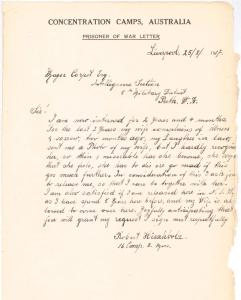 CONCENTRATION CAMPS, AUSTRALIA
PRISONER OF WAR LETTER
Liverpool, 25/8/1917.
Major Corbet Esq.
Intelligence Section
5th Military District
Perth, W. A.
Sir!
I am now interned for 2 years and 4 months.
For the last 2 years my wife complains of illness
& several months ago, my Daughter in Law,
sent me a Photo of my wife, but I hardly recogni
her, so thin & miserable has she become, she says
that she feels, she has to die are go made if this
goes much further. In consideration of this I ask you
to release me, so that I can be together with her.
I am also satisfied if I am released here in N. S. W.
as I have spend 8 years here before, and my Wife is al
lowed to come over here. Joyfully anticipating that
you will grant my request I sign most respectfully
Robert
16 Camp. 2.